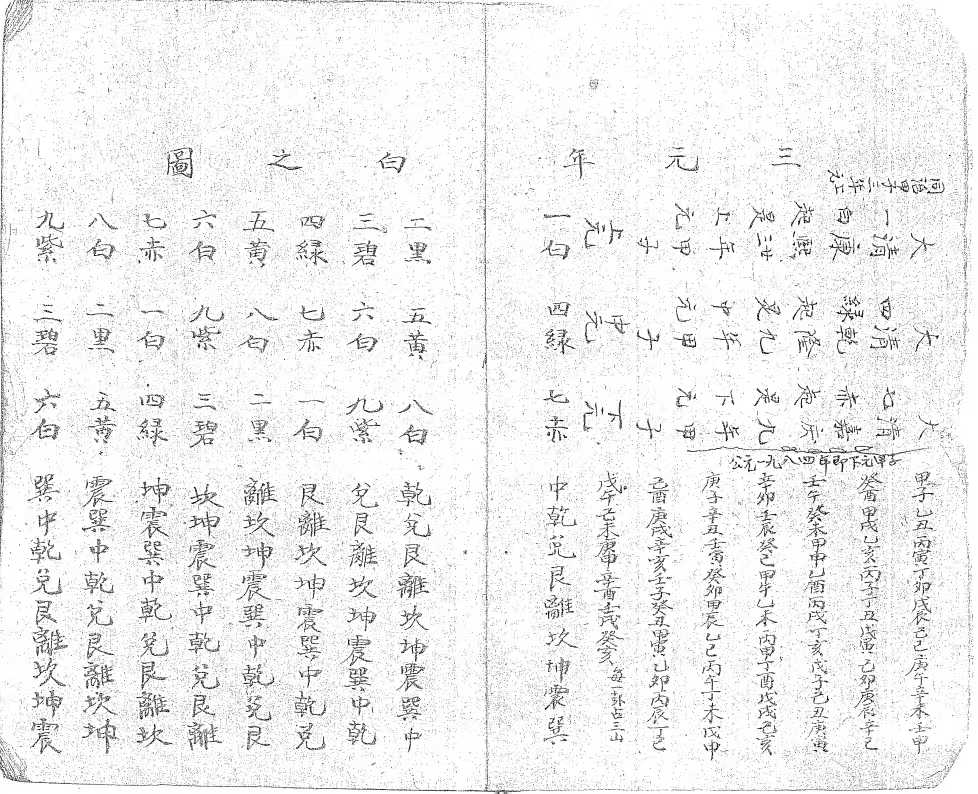 三元年白之圖
同治甲子三年上元
大清康熙廿三年甲子
一白起是上元
上元
大清乾隆九年甲子
四綠起是中元
中元
大清嘉慶九年甲子
七赤起是下元
下元
公元一九八四年即下元甲子
甲子乙丑丙寅丁卯戊辰己巳庚午辛未壬申
癸酉甲戌乙亥丙子丁丑戊寅己卯庚辰辛巳
壬午癸未甲申乙酉丙戌丁亥戊子己丑庚寅
辛卯壬辰癸巳甲午乙未丙申丁酉戊戌己亥
庚子辛丑壬寅癸卯甲辰乙巳丙午丁未戊申
己酉庚戌辛亥壬子癸丑甲寅乙卯丙辰丁巳
戊午己未庚申辛酉壬戌癸亥 每一卦占三山
一白 四綠 七赤 中乾兌艮離坎坤震巽
二黑 五黃 八白 乾兌艮離坎坤震巽中
三碧 六白 九紫 兌艮離坎坤震巽中乾
四綠 七赤 一白 艮離坎坤震巽中乾兌
五黃 八白 二黑 離坎坤震巽中乾兌艮
六白 九紫 三碧 坎坤震巽中乾兌艮離
七赤 一白 四綠 坤震巽中乾兌艮離坎
八白 二黑 五黃 震巽中乾兌艮離坎坤
九紫 三碧 六白 巽中乾兌艮離坎坤震